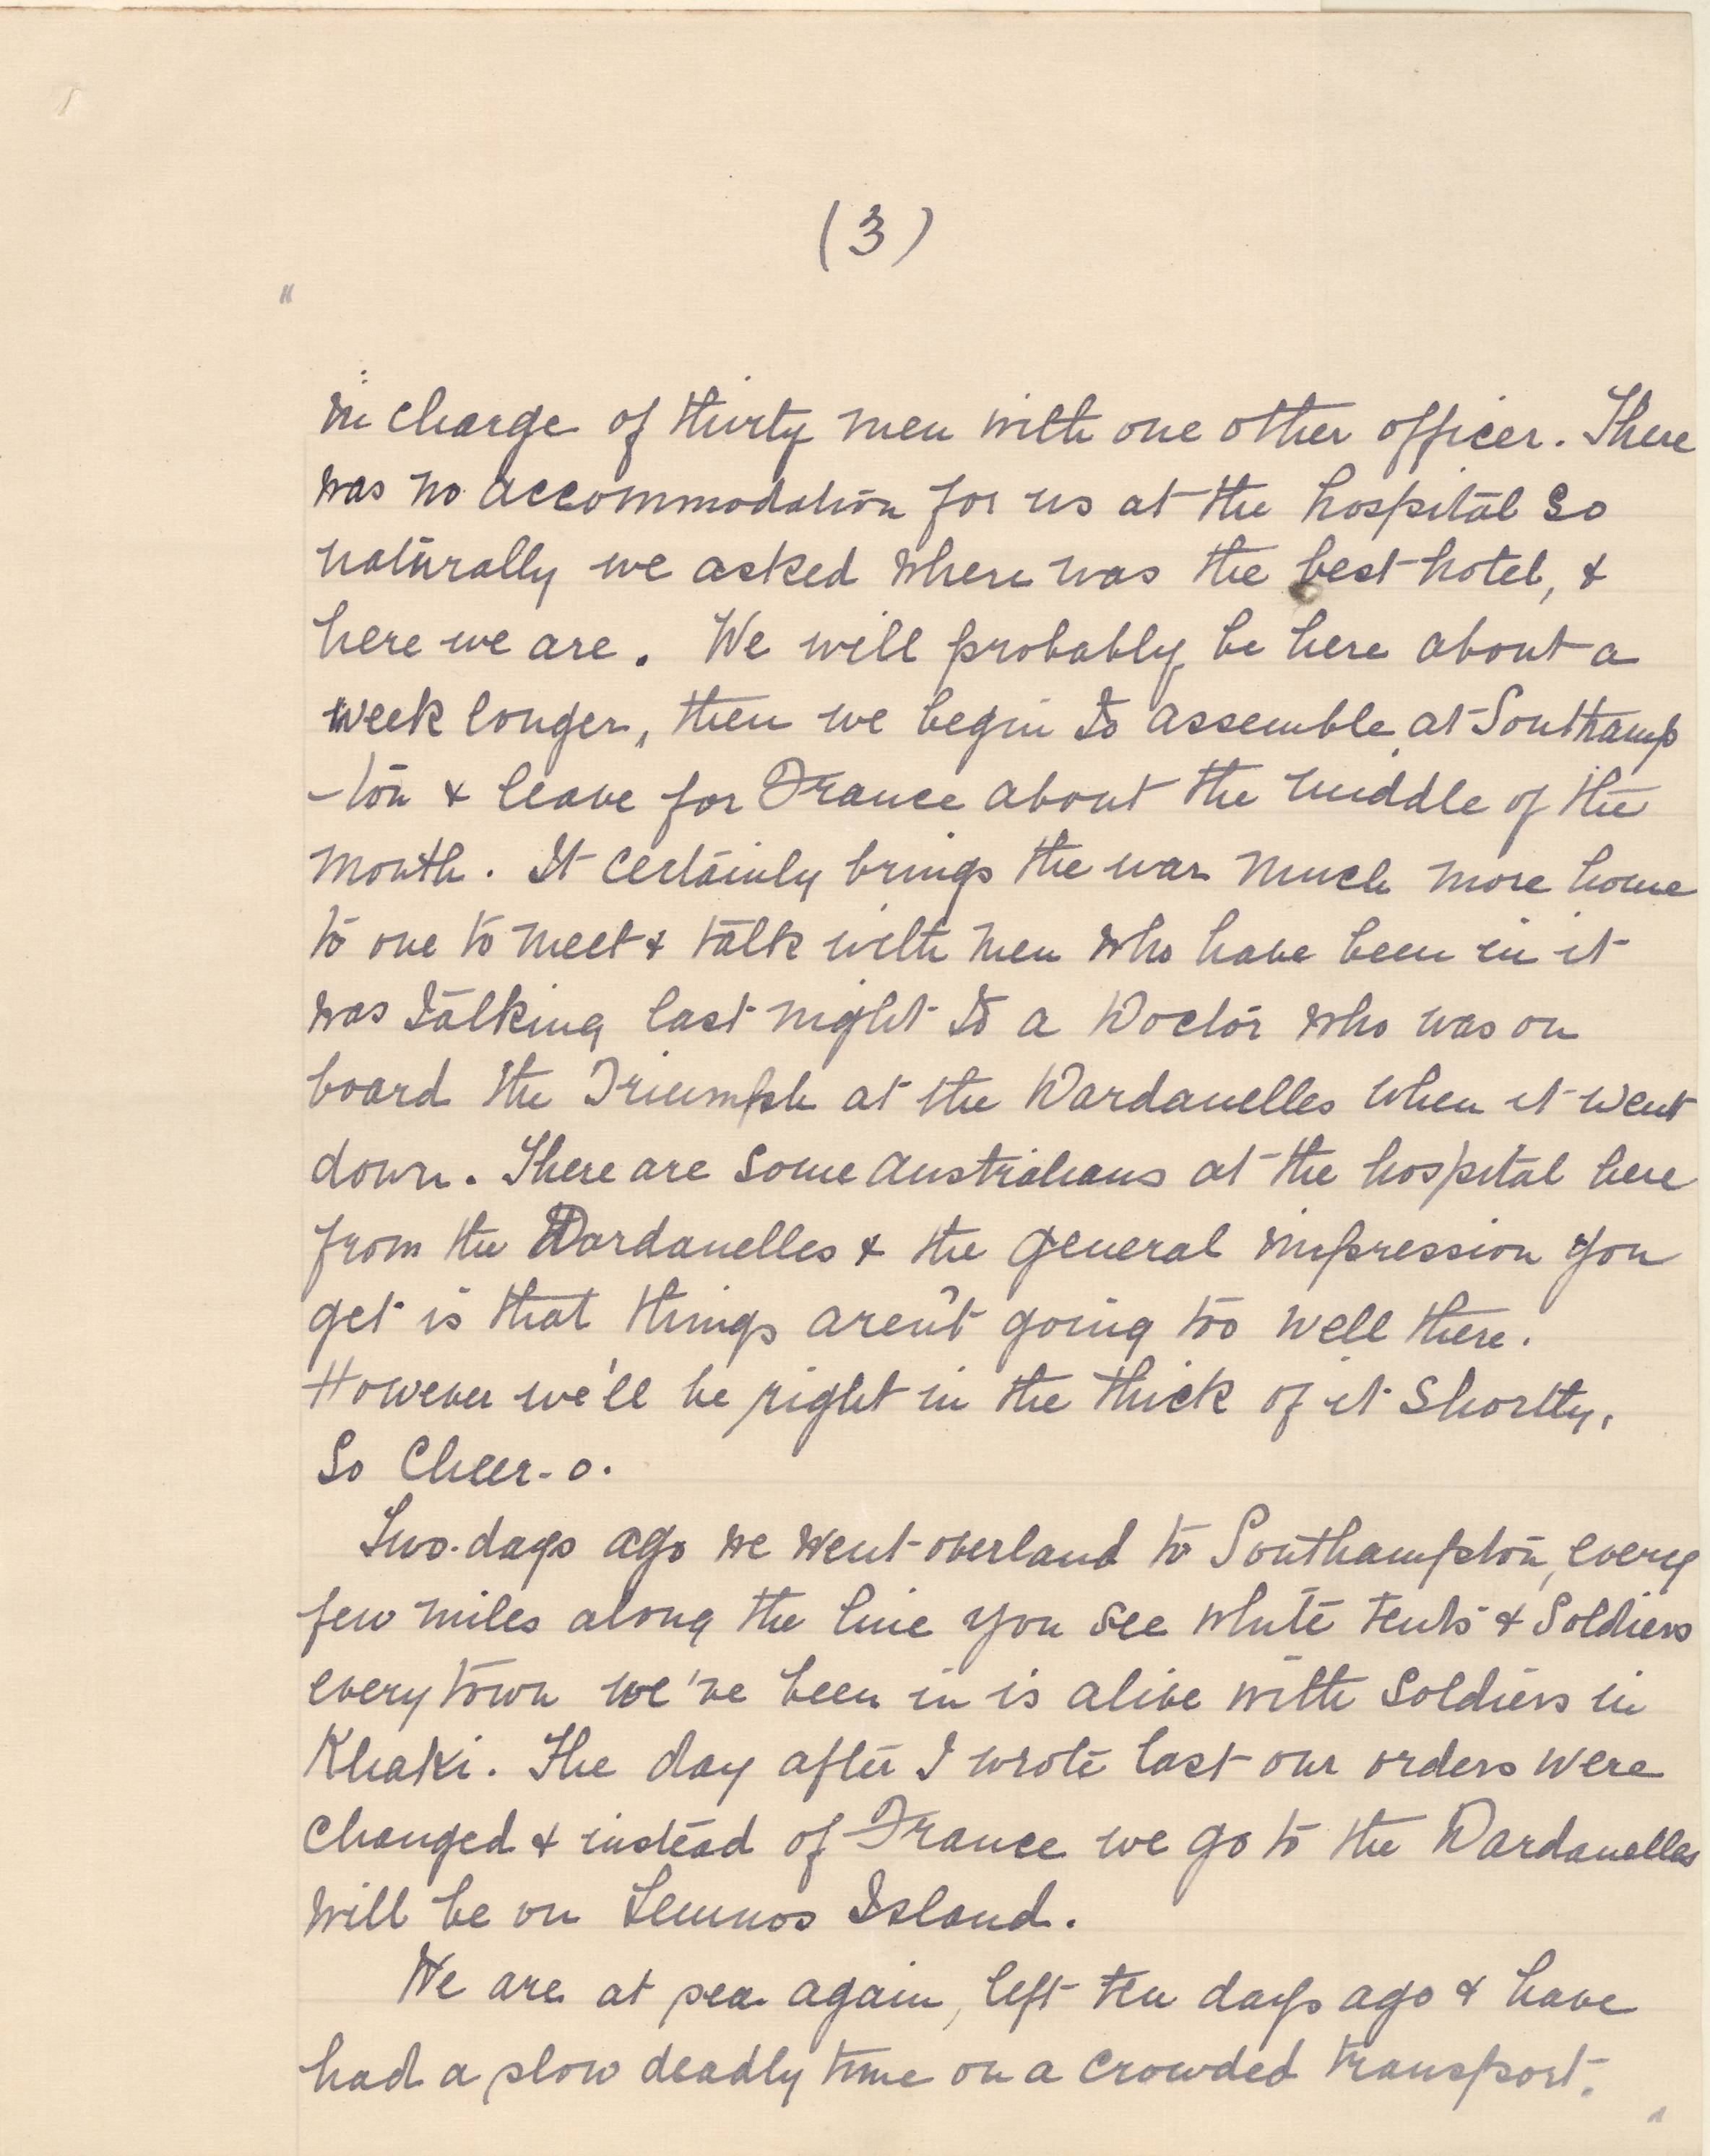 (3)
in charge of thirty men with one other officer. There
was no accommodation for us at the hospital so
naturally we asked where was the best hotel, &
here we are. We will probably be here about a
week longer, then we begin to assemble at Southamp
-ton & leave for France about the middle of the
month. It certainly brings the war much more home
to one to meet & talk with men who have been in it
was talking last night to a Doctor who was on
board the Triumph at the Dardanelles when it went
down. There are some Australians at the hospital here
from the Dardanelles & the general impression you
get is that things aren't going too well there.
However we'll be right in the thick of it shortly,
So Cheer-o.
Two days ago we went overland to Southampton, every
few miles along the line you see white tents & Soldiers
every town we've been in is alive with Soldiers in
Khaki. The day after I wrote last our orders were
changed & instead of France we go to the Dardanelles
will be on Lemnos Island.
We are at sea again, left ten days ago & have
had a slow deadly time on a crowded transport.